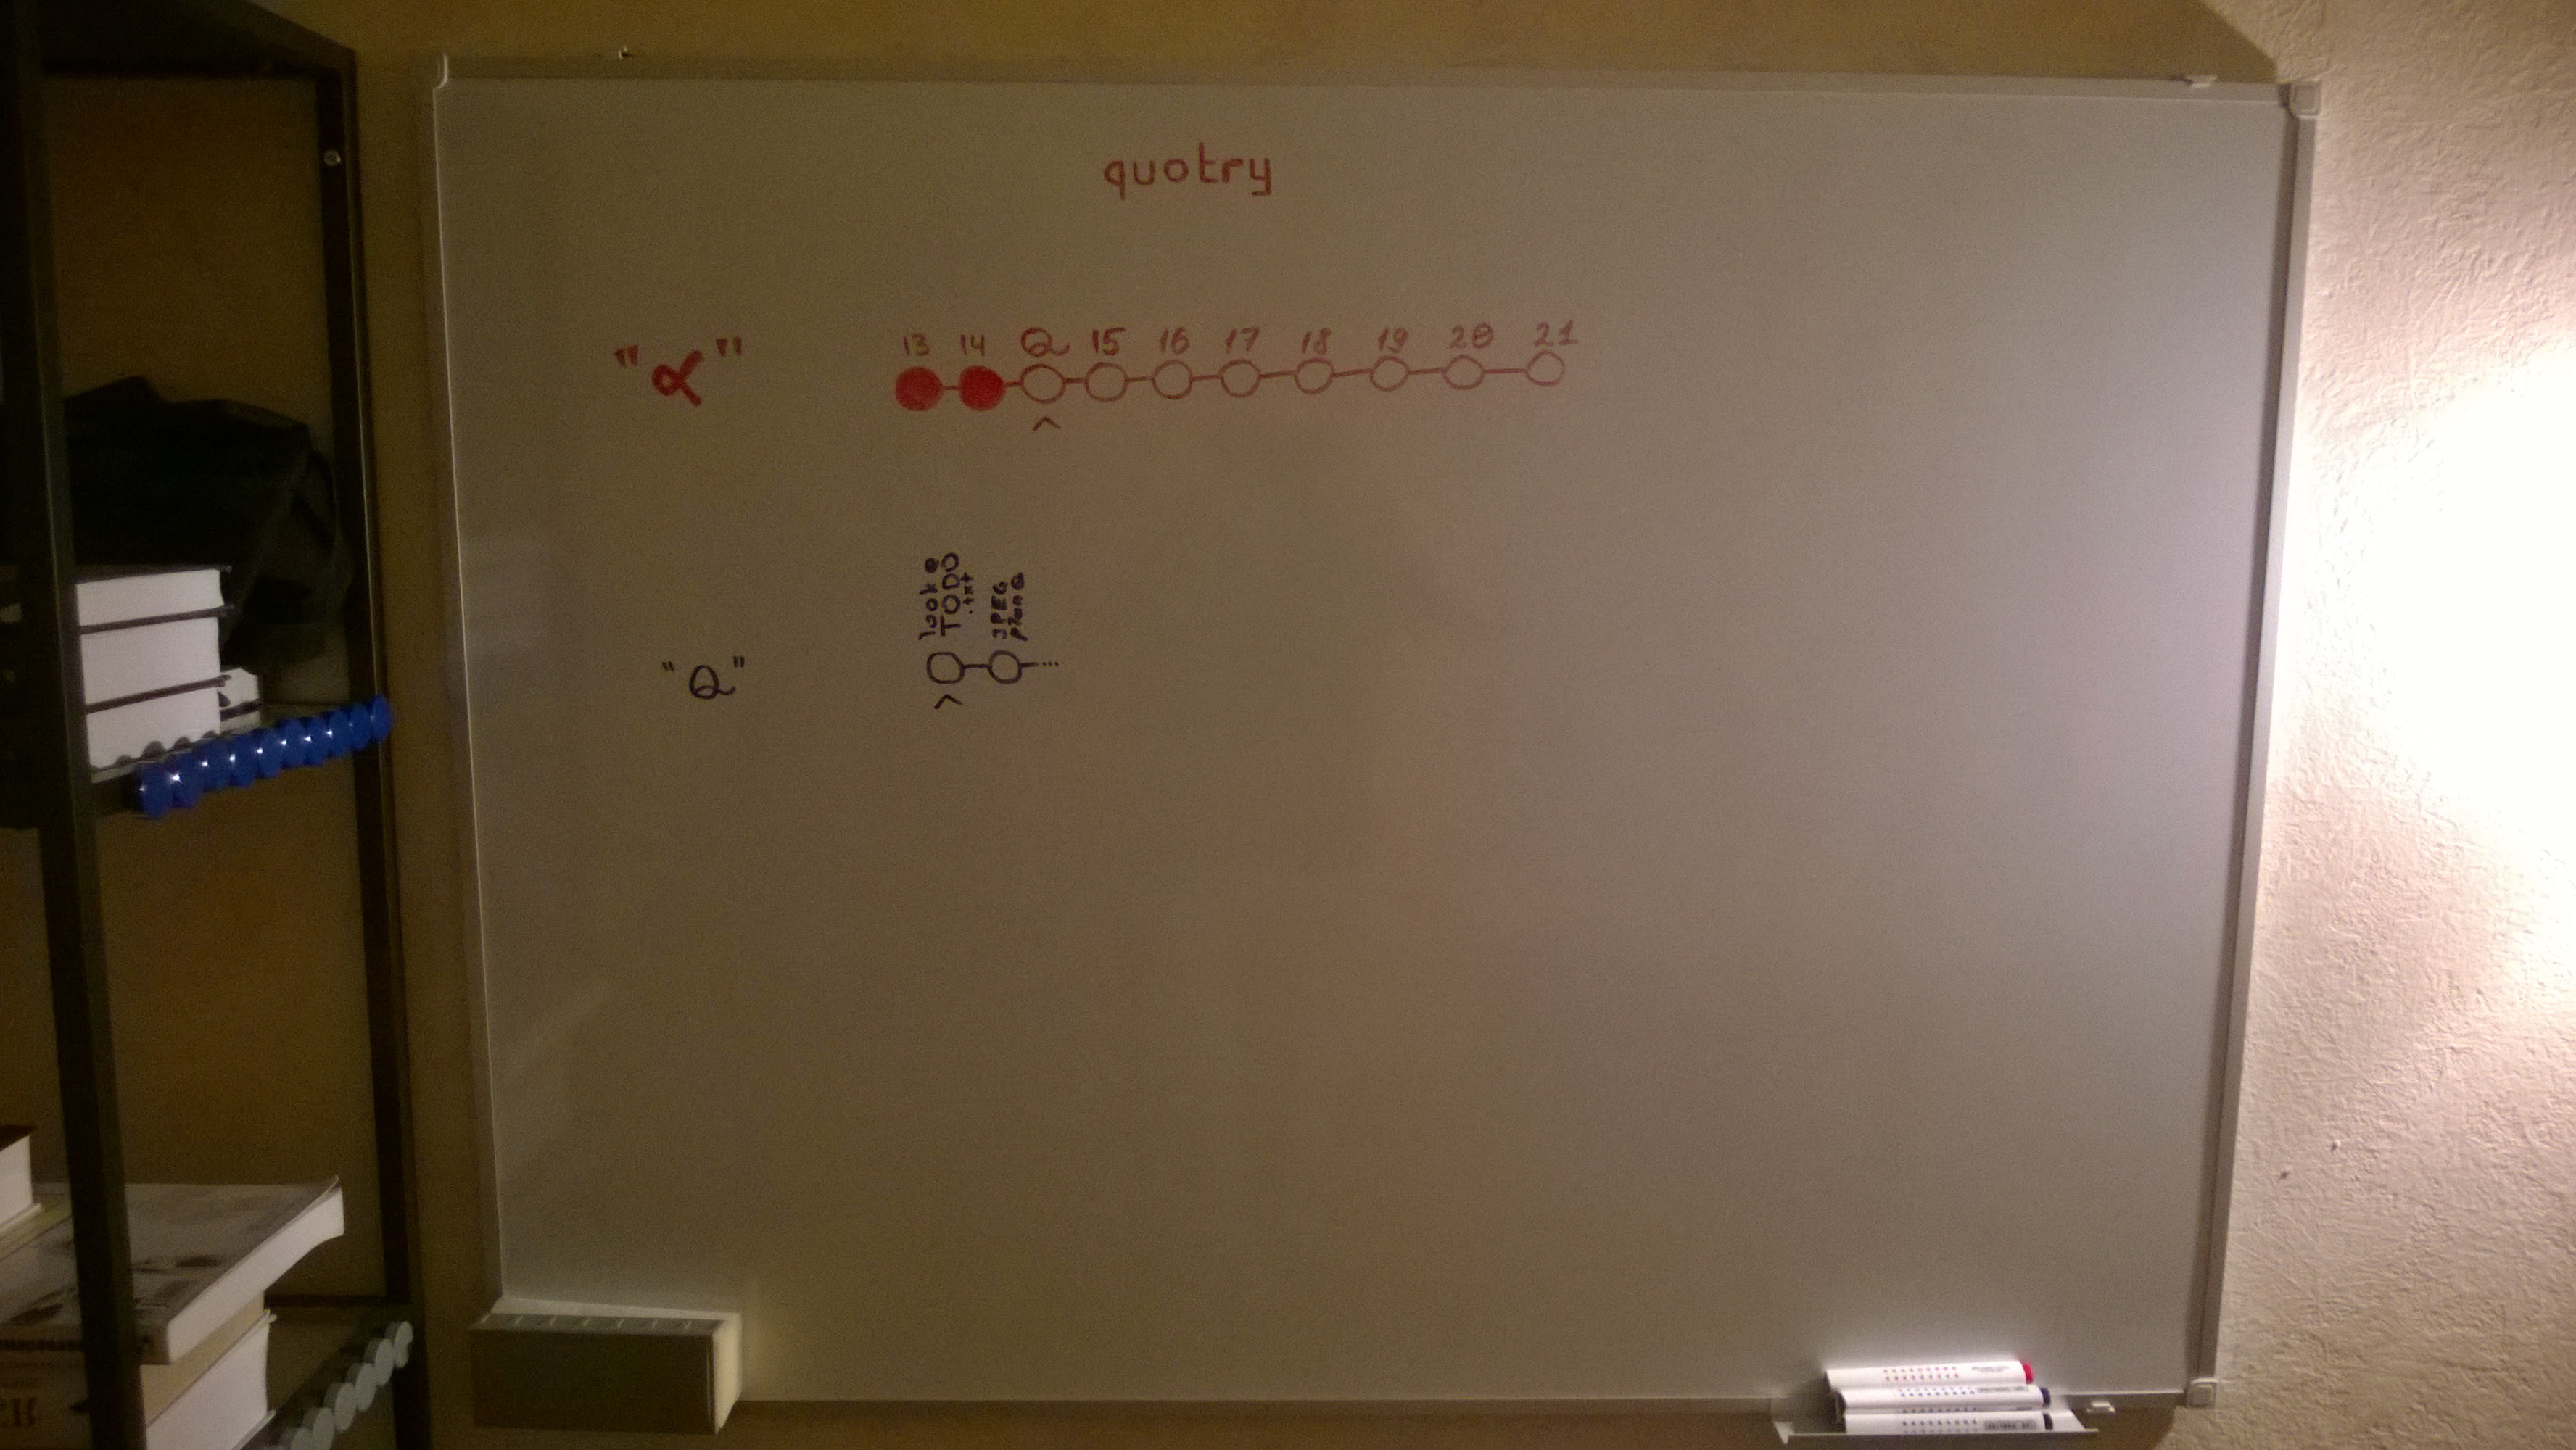 quotry
"α" 13 14 Q 15 16 17 18 19 20 21
^
look @
TODO
.txt
JPEG
plan @
"Q" ...
^